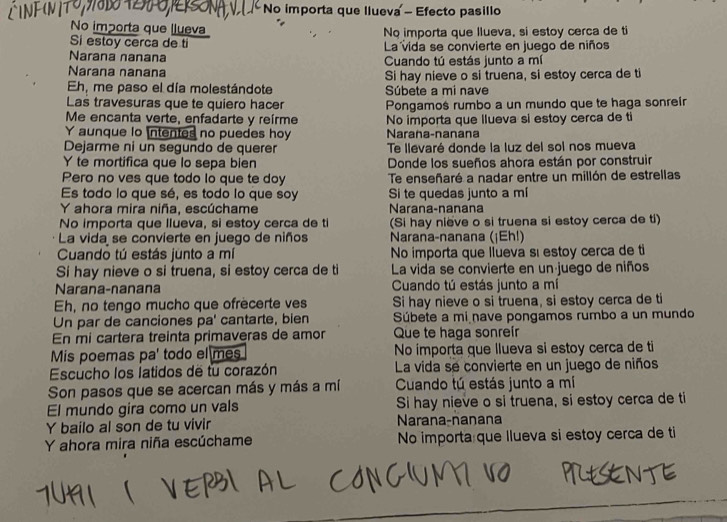 L'INFINITO, MODO TEMPO, PERSONA, V.
No importa que llueva – Efecto pasillo
No importa que llueva
Si estoy cerca de ti
Narana nanana
Narana nanana
Eh, me paso el día molestándote
Las travesuras que te quiero hacer
Me encanta verte, enfadarte y reírme
Y aunque lo intentes no puedes hoy
Dejarme ni un segundo de querer
Y te mortifica que lo sepa bien
Pero no ves que todo lo que te doy
Es todo lo que sé, es todo lo que soy
Y ahora mira niña, escúchame
No importa que llueva, si estoy cerca de ti
La vida se convierte en juego de niños
Cuando tú estás junto a mí
Si hay nieve o si truena, si estoy cerca de ti
Narana-nanana
Eh, no tengo mucho que ofrecerte ves
Un par de canciones pa' cantarte, bien
En mi cartera treinta primaveras de amor
Mis poemas pa' todo el mes
Escucho los latidos de tu corazón
Son pasos que se acercan más y más a mí
El mundo gira como un vals
Y bailo al son de tu vivir
Y ahora mira niña escúchame
No importa que llueva, si estoy cerca de ti
La vida se convierte en juego de niños
Cuando tú estás junto a mí
Si hay nieve o si truena, si estoy cerca de ti
Súbete a mi nave
Pongamos rumbo a un mundo que te haga sonreír
No importa que llueva si estoy cerca de ti
Narana-nanana
Te llevaré donde la luz del sol nos mueva
Donde los sueños ahora están por construir
Te enseñaré a nadar entre un millón de estrellas
Si te quedas junto a mí
Narana-nanana
(Si hay nieve o si truena si estoy cerca de ti)
Narana-nanana (¡Eh!)
No importa que llueva si estoy cerca de ti
La vida se convierte en un juego de niños
Cuando tú estás junto a mí
Si hay nieve o si truena, si estoy cerca de ti
Súbete a mi nave pongamos rumbo a un mundo
Que te haga sonreír
No importa que llueva si estoy cerca de ti
La vida se convierte en un juego de niños
Cuando tú estás junto a mí
Si hay nieve o si truena, si estoy cerca de ti
Narana-nanana
No importa que llueva si estoy cerca de ti
TUTTI I VERBI AL CONGIUNTIVO PRESENTE